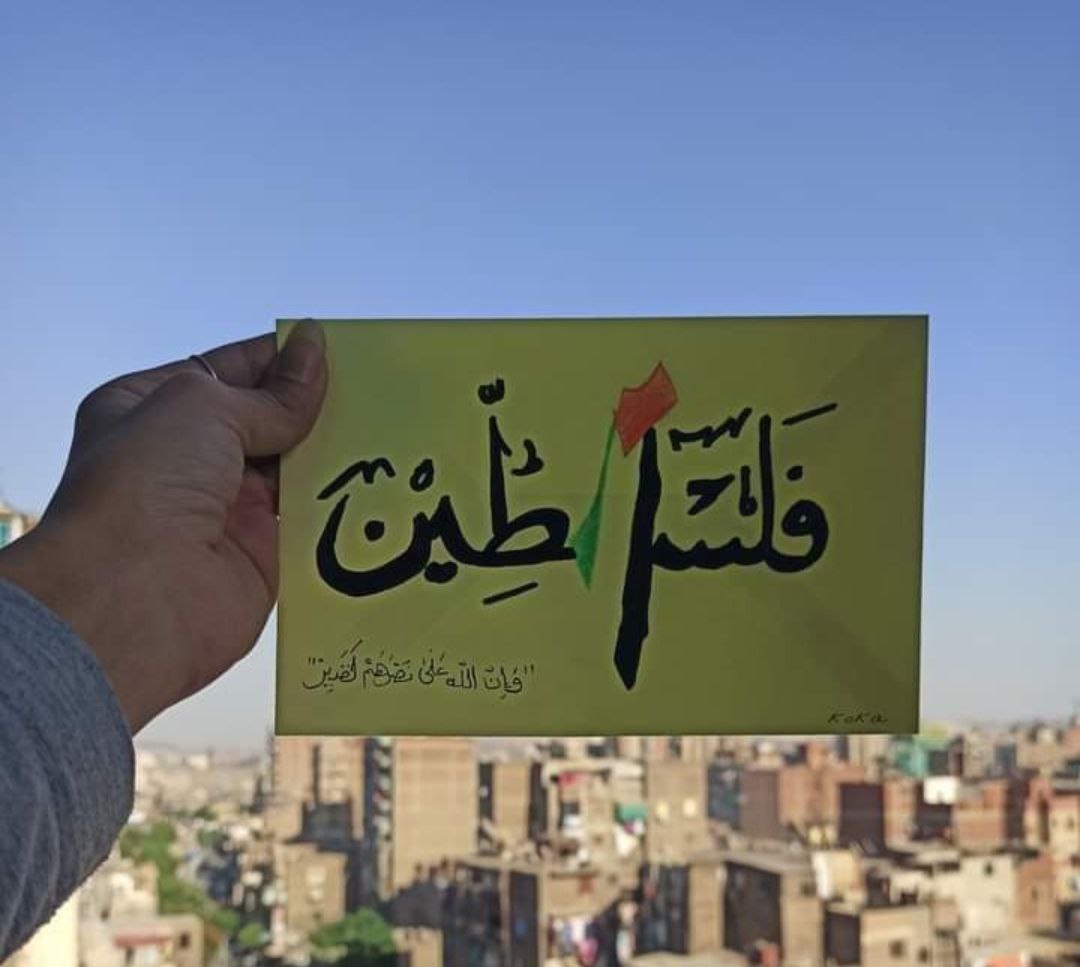 فَلَسْطِين
"وَإِنّ اللّه عَلىٰ نَصْرِهُمْ لَقَدِيرْ"
Koka